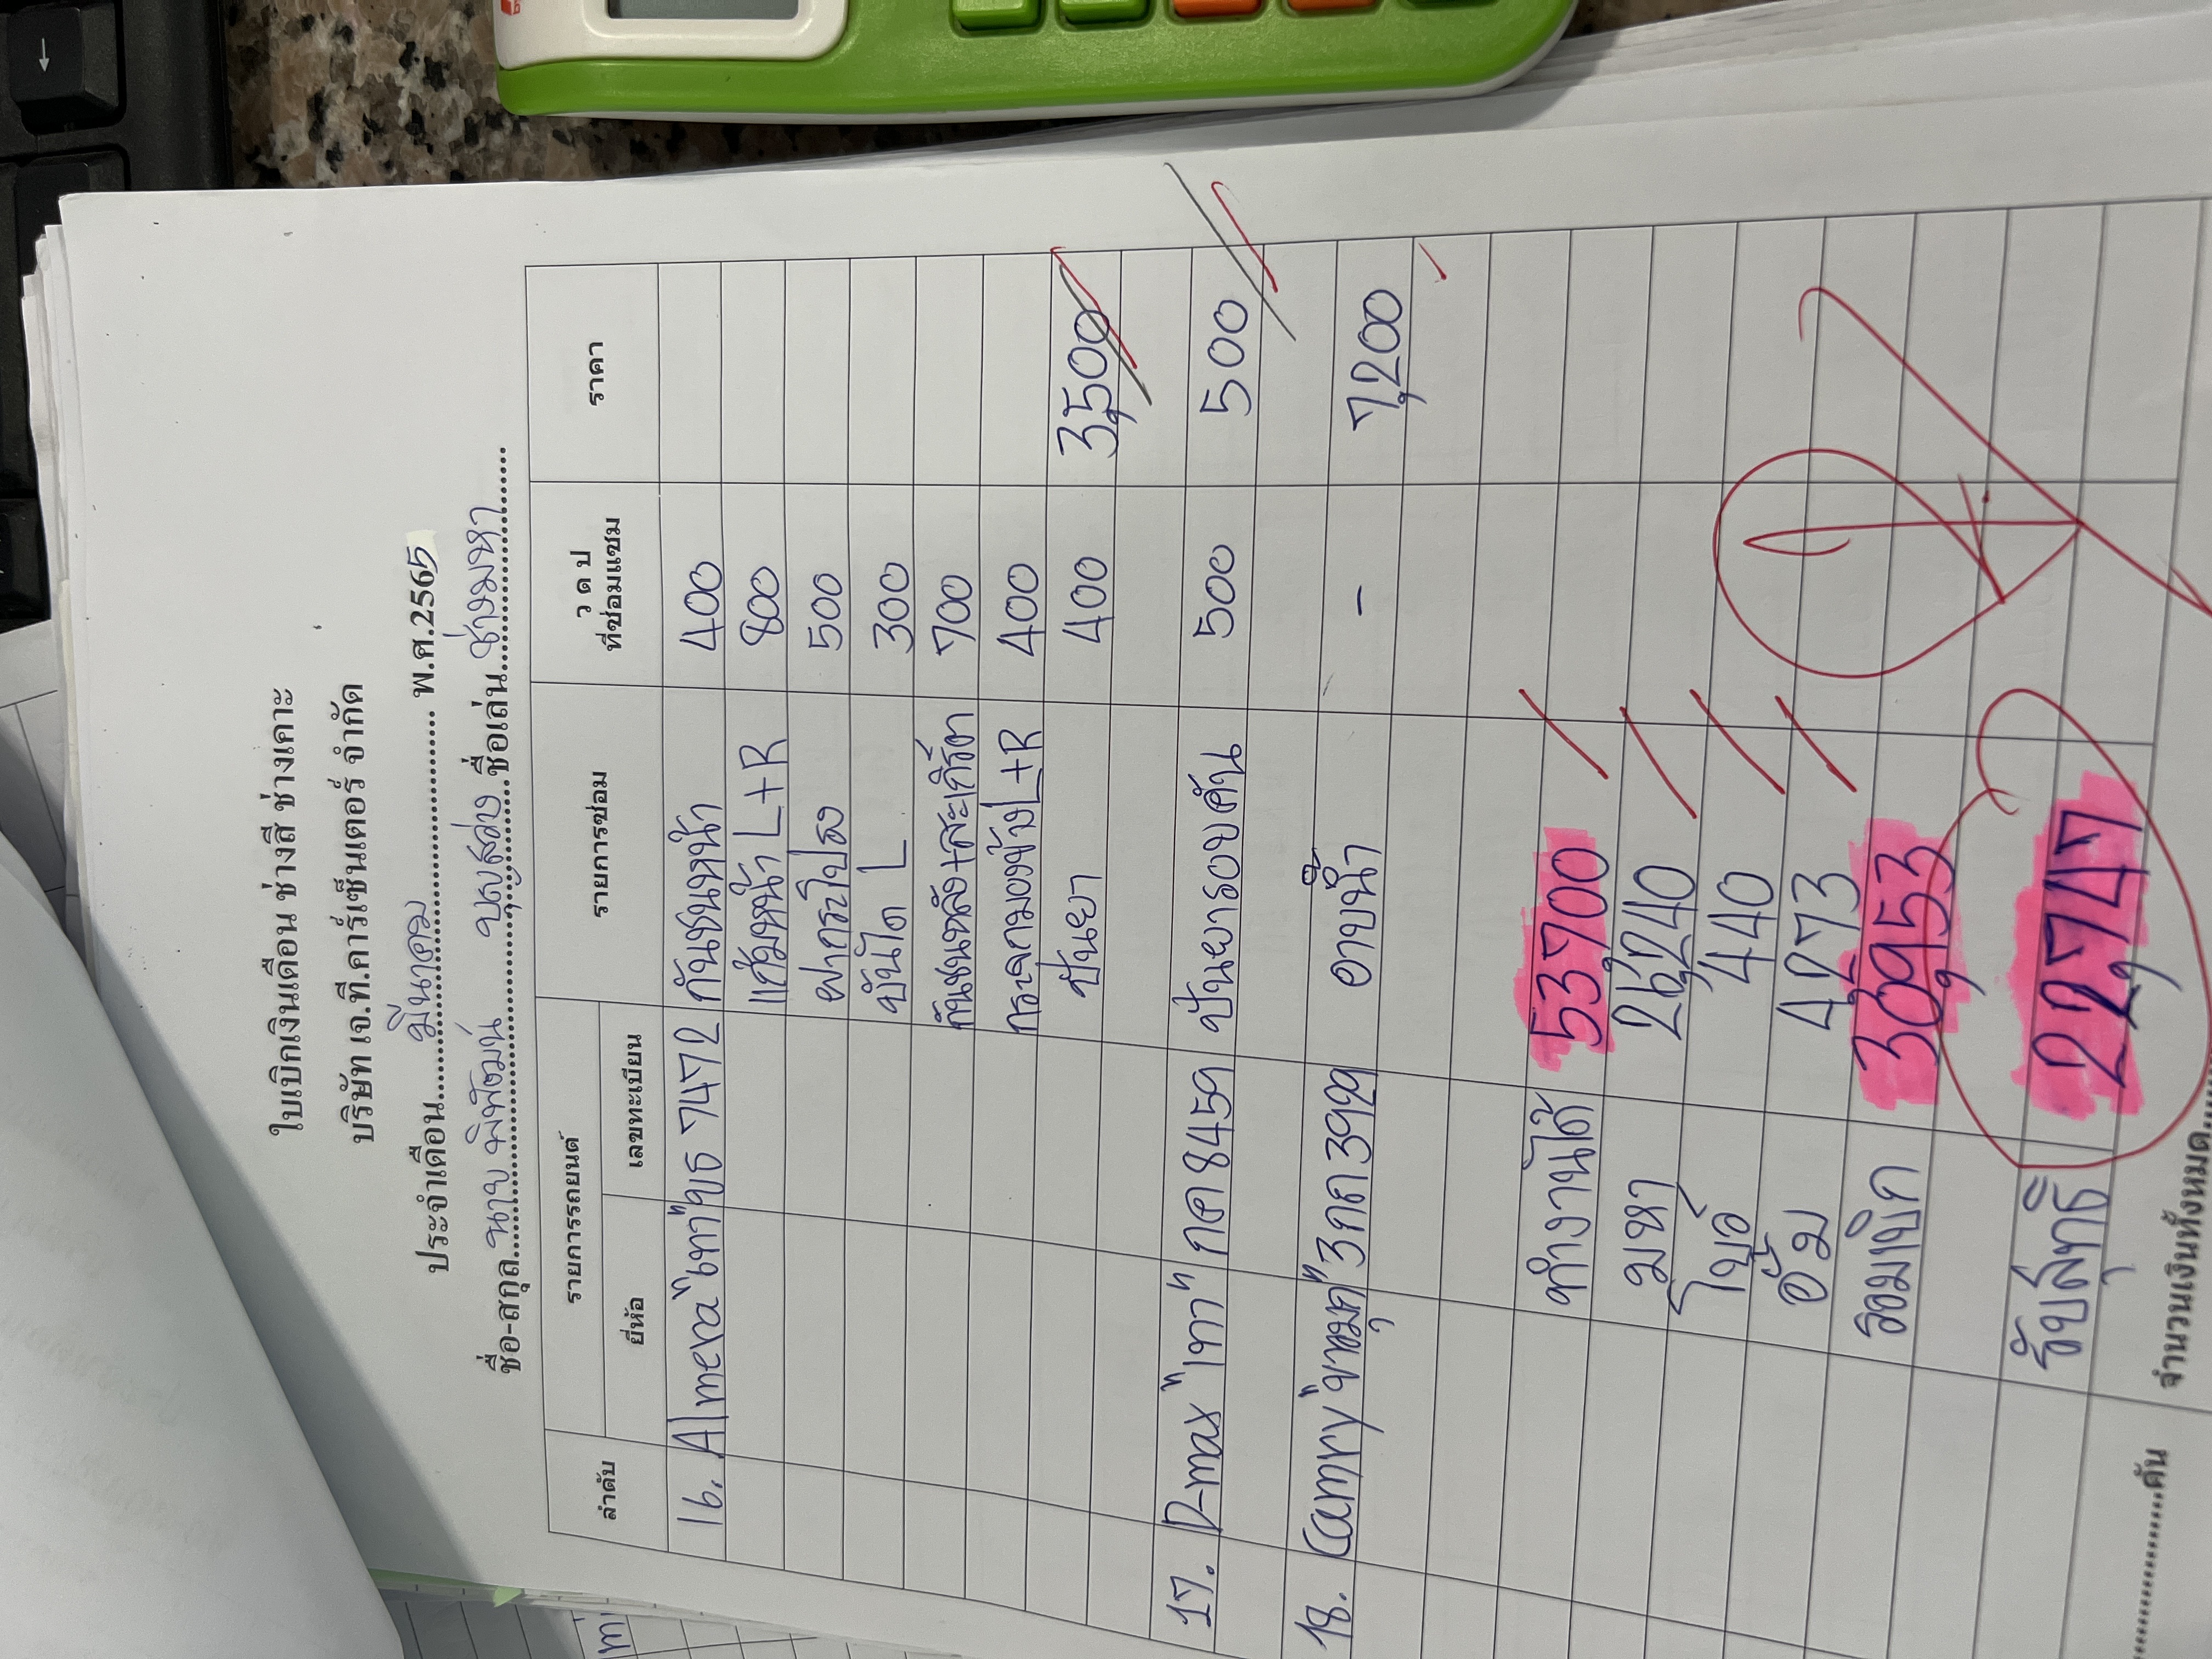 ใบเบิกเงินเดือน ช่างสี ช่างเคาะ
บริษัท เจ.ที.คาร์เซ็นเตอร์ จำกัด
ประจำเดือน....มีนาคม.... พ.ศ.2565
ชื่อ-สกุล....นาย พิพัฒน์ บุญสอง....ชื่อเล่น....ช่างมหา....
ลำดับ รายการรถยนต์ รายการซ่อม ว ด ป ที่ซ่อมแซม ราคา
ยี่ห้อ เลขทะเบียน
16. Almera "เทา" ขธ 7472 กันชนหน้า 400
แก้มหน้า L+R 800
ฝากระโปรง 500
บันได L 300
กันชนหลัง+สะเกิร์ต 700
กระจกมองข้าง L+R 400
ปั่นยา 400 3,500
17. D-max "เทา" กค 8459 ปั่นยารอบคัน 500 500
18. Camry "ชมพู" 3กถ 399 อาบน้ำ - 7,200
ทำงานได้ 53,700
มหา 26,240
โบอ์ 440
อั้ม 4,273
รวมเบิก 30,953
รับสุทธิ 22,747
....คัน จำนวนเงินทั้งหมด....